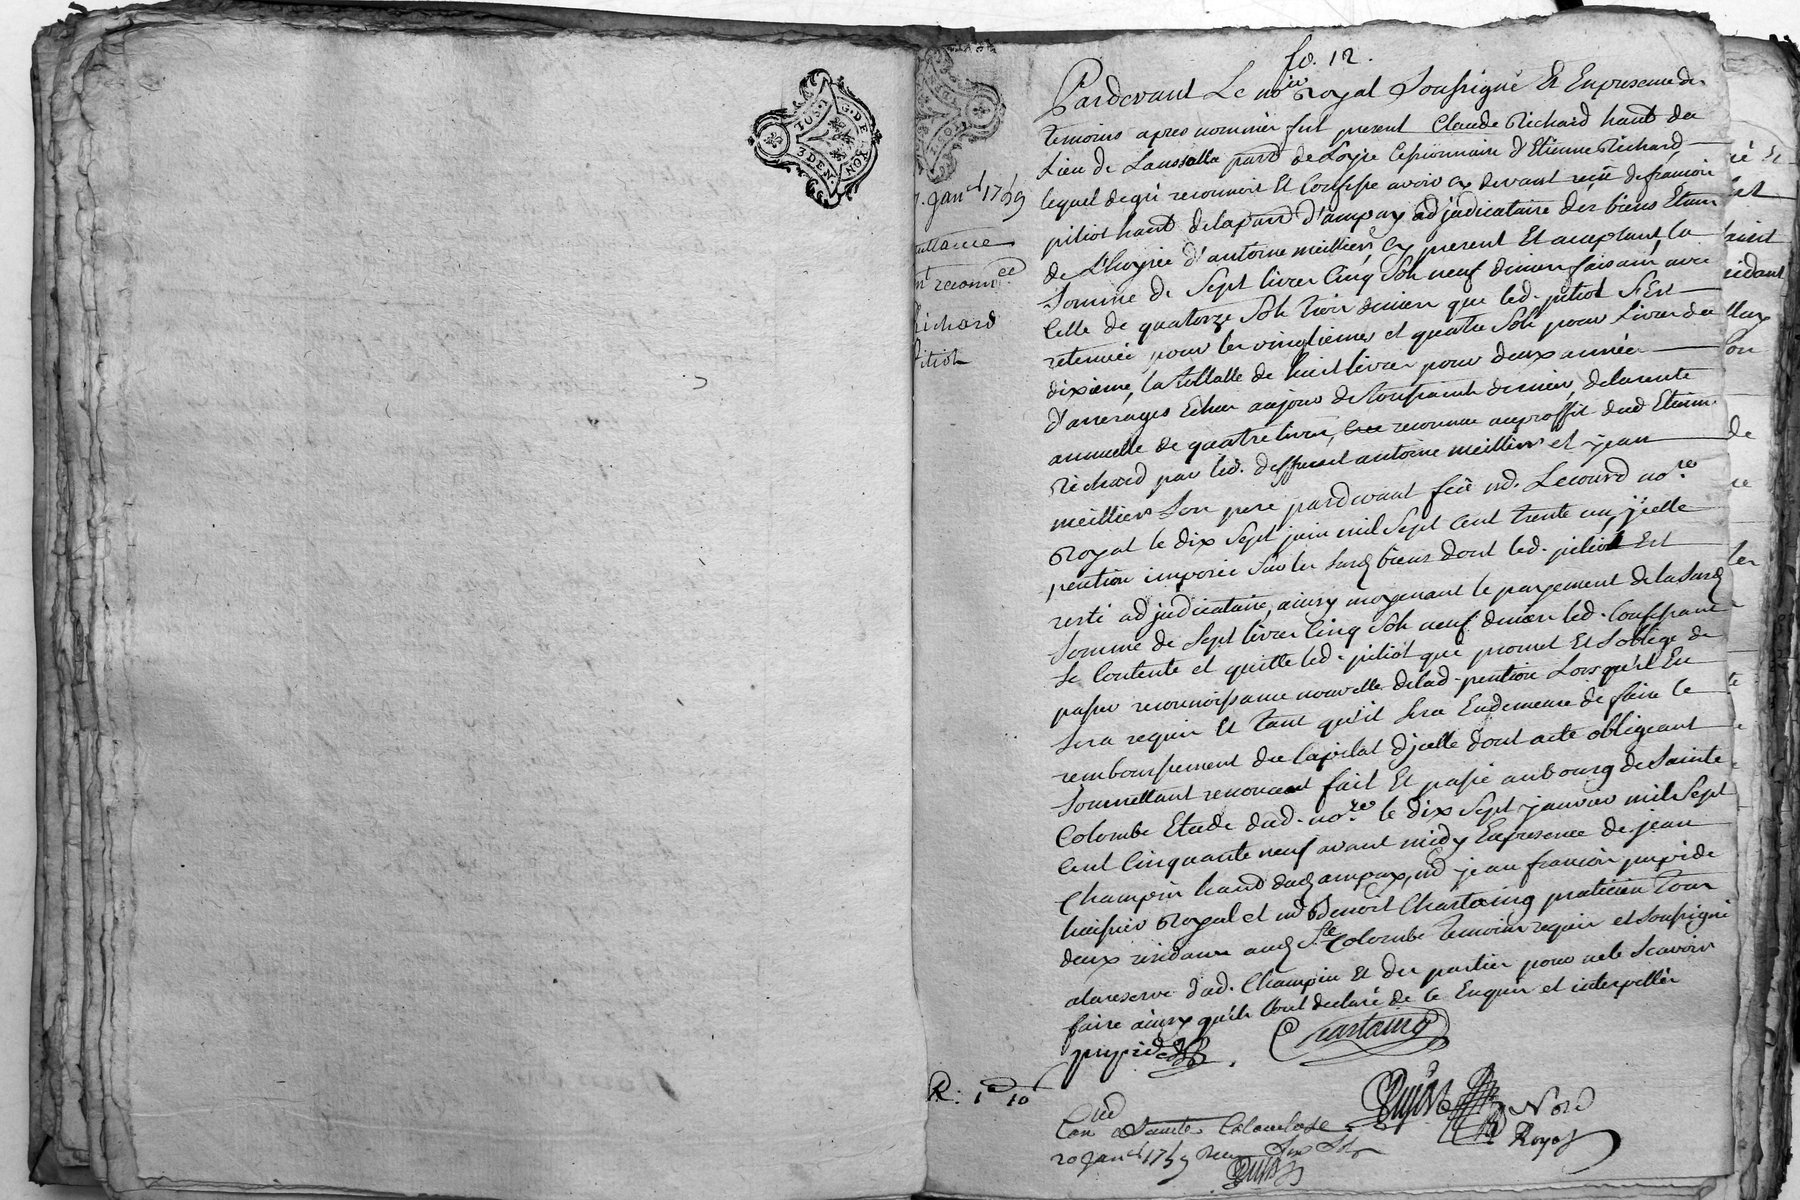 G. DE LYON
3 DEN.
fo. 12.
17 Janer 1759
quittance
et reconnce
Richard
pitiot
Pardevant Le nore Royal Soussigné Et Enpresence des
temoins apres nommés fut present Claude Richard habt du
Lieu de Laussalla parse de Loyre Cessionnaire d'Etienne Richard
lequel degré reconnoit Et Confesse avoir cy devant reçû de francois
pitiot habt dela parse d'ampuy adjudicataire des biens Etant
de L'hoyrie d'antoine meillier cy present Et acceptant, la
Somme de Sept livres Cinq Sols neuf deniers faisant, avec
Celle de quatorze Sols trois deniers que led. pitiot S'Est
retenue, pour les vingtiemes et quatre Sols pour Livres du
dixieme, la tottalle de huit livres pour deux années
d'arrerages Echus aujour de Toussaints dernier, delarente
annuelle de quatre livres, reconnue auproffit dud Etienne
Richard par led. deffunt antoine meillier et jean
meillier Son pere pardevant feû md. Lecourd nore
Royal le dix Sept juin mil Sept Cent trente un, jcelle
pention imposée Sur les Susd biens dont led. pitiot Est
resté adjudicataire, ainsy moyenant le payement delaSusd
Somme de Sept livres Cinq Sols neuf deniers led. Confessant
Se Contente et quitte led. pitiot qui promet Et Soblige de
passer reconnoissance nouvelle delad. pention Lorsqu'il En
Sera requis Et tant qu'il Sera Endemeure de faire le
remboursement du Capital d'jcelle dont acte obligeant
Soumettant renoncant fait Et passé aubourg de Sainte
Colombe Etude dud. nore le dix Sept janvier mil Sept
Cent Cinquante neuf avant midy Enpresence de jean
Champin habt dud ampuy, md jean francois pupide
huissier Royal et md Benoit Chartaing praticien tous
deux residans aud Ste Colombe temoins requis et Soussignés
alareserve dud. Champin Et des parties pour nele Scavoir
faire ainsy quils L'ont declaré de ce Enquis et interpellés
pupide
Chartaing
R: 1 10
Dujast Nore
Royal
Conlé a Sainte Colombe
20 Janer 1759 Reçu Six Sols
Dujast